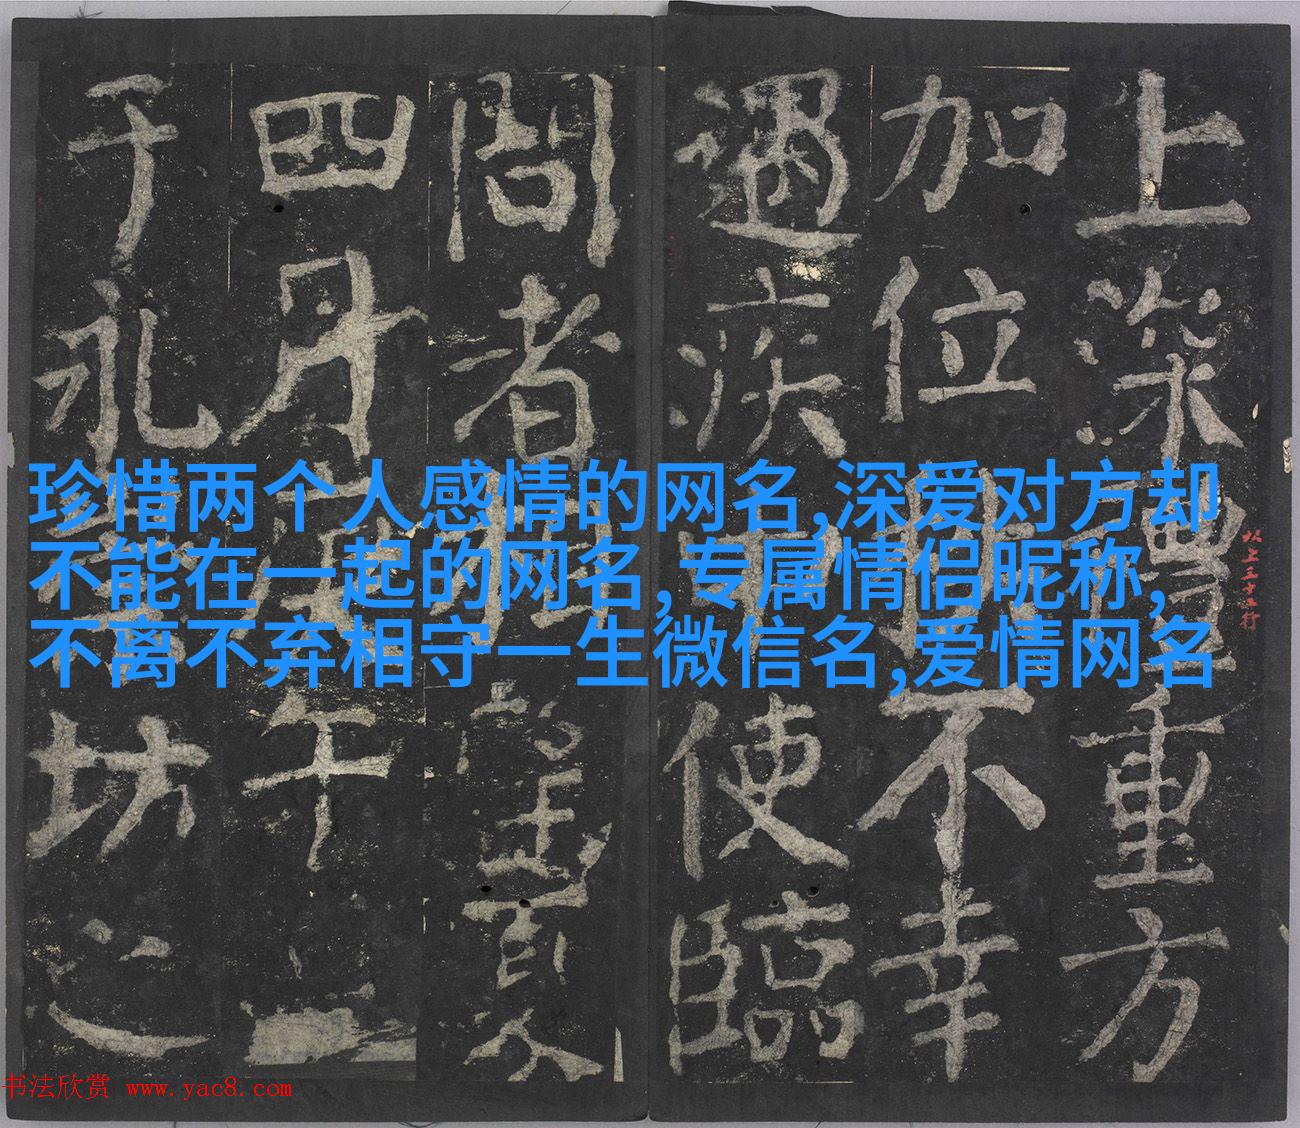 上深重方
加位不幸
遇疾使臨
問者望夏
四月午
于永坊之
珍惜两个人感情的网名,深爱对方却
不能在一起的网名,专属情侣昵称,
不离不弃相守一生微信名,爱情网名
书法欣赏 www.yac8.com